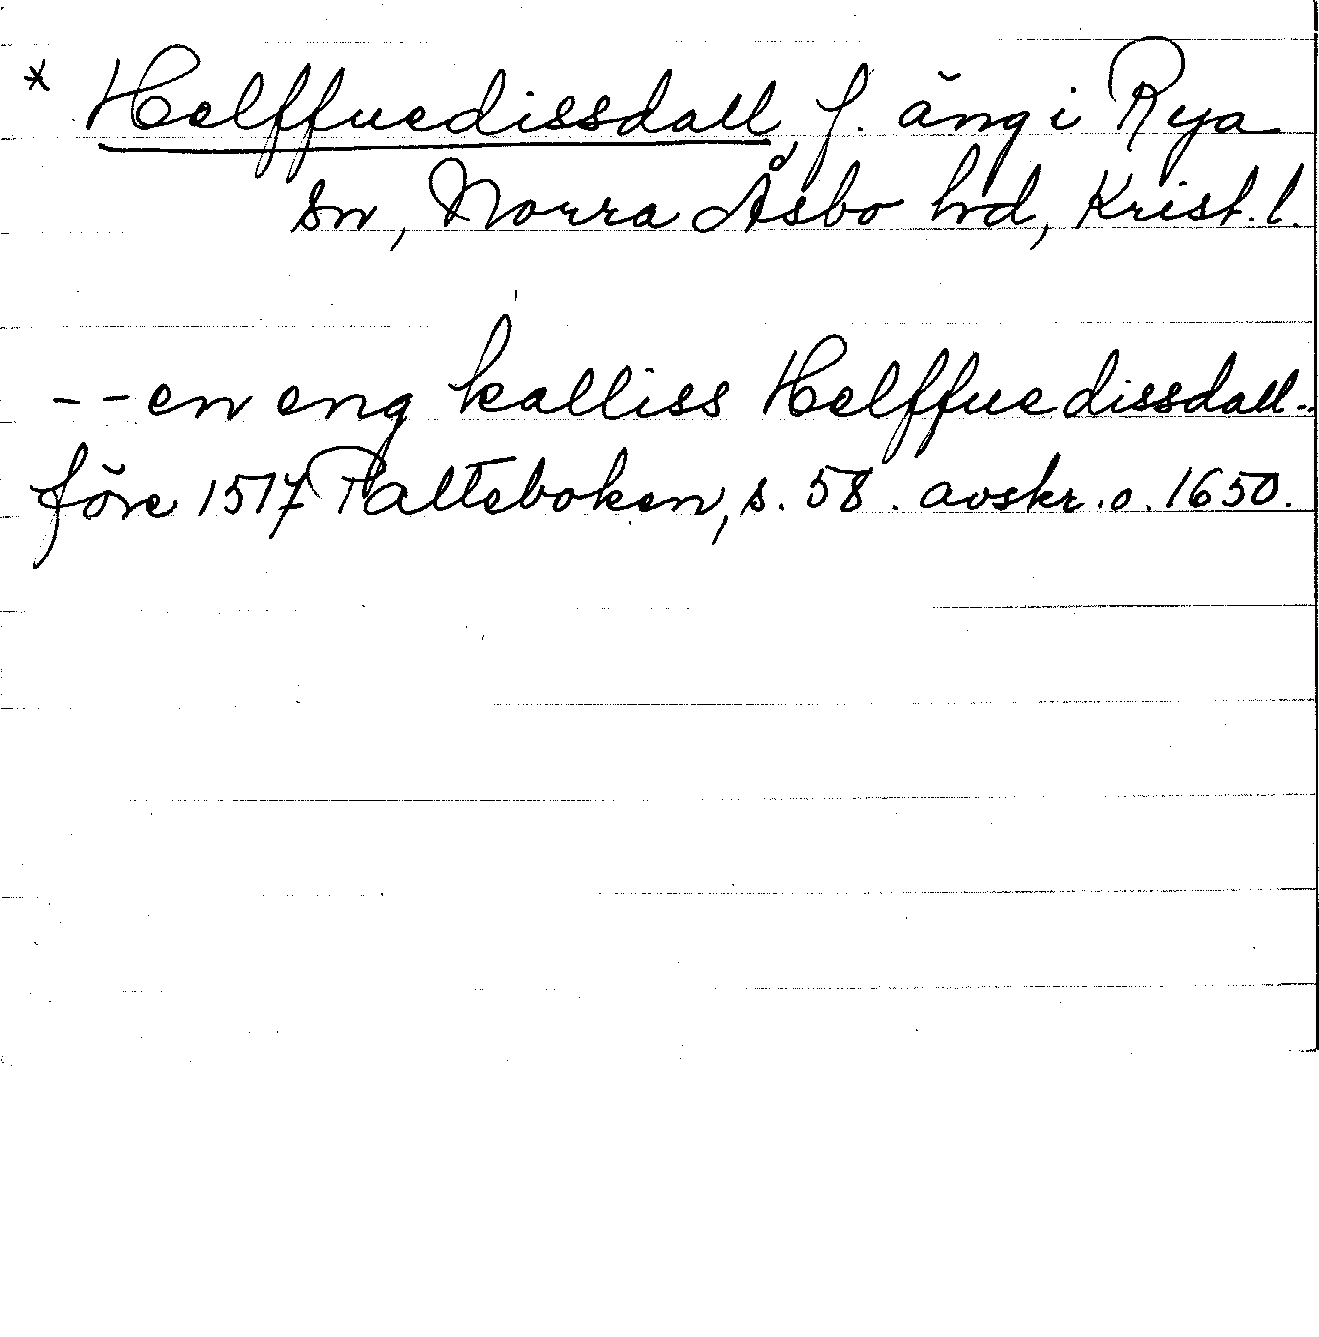 * Helffuedissdall, f. äng i Rya
sn, Norra Åsbo hrd, Krist. l.
-- en eng kalliss Helffuedissdall..
före 1517 Palteboken, s. 58. avskr. o. 1650.